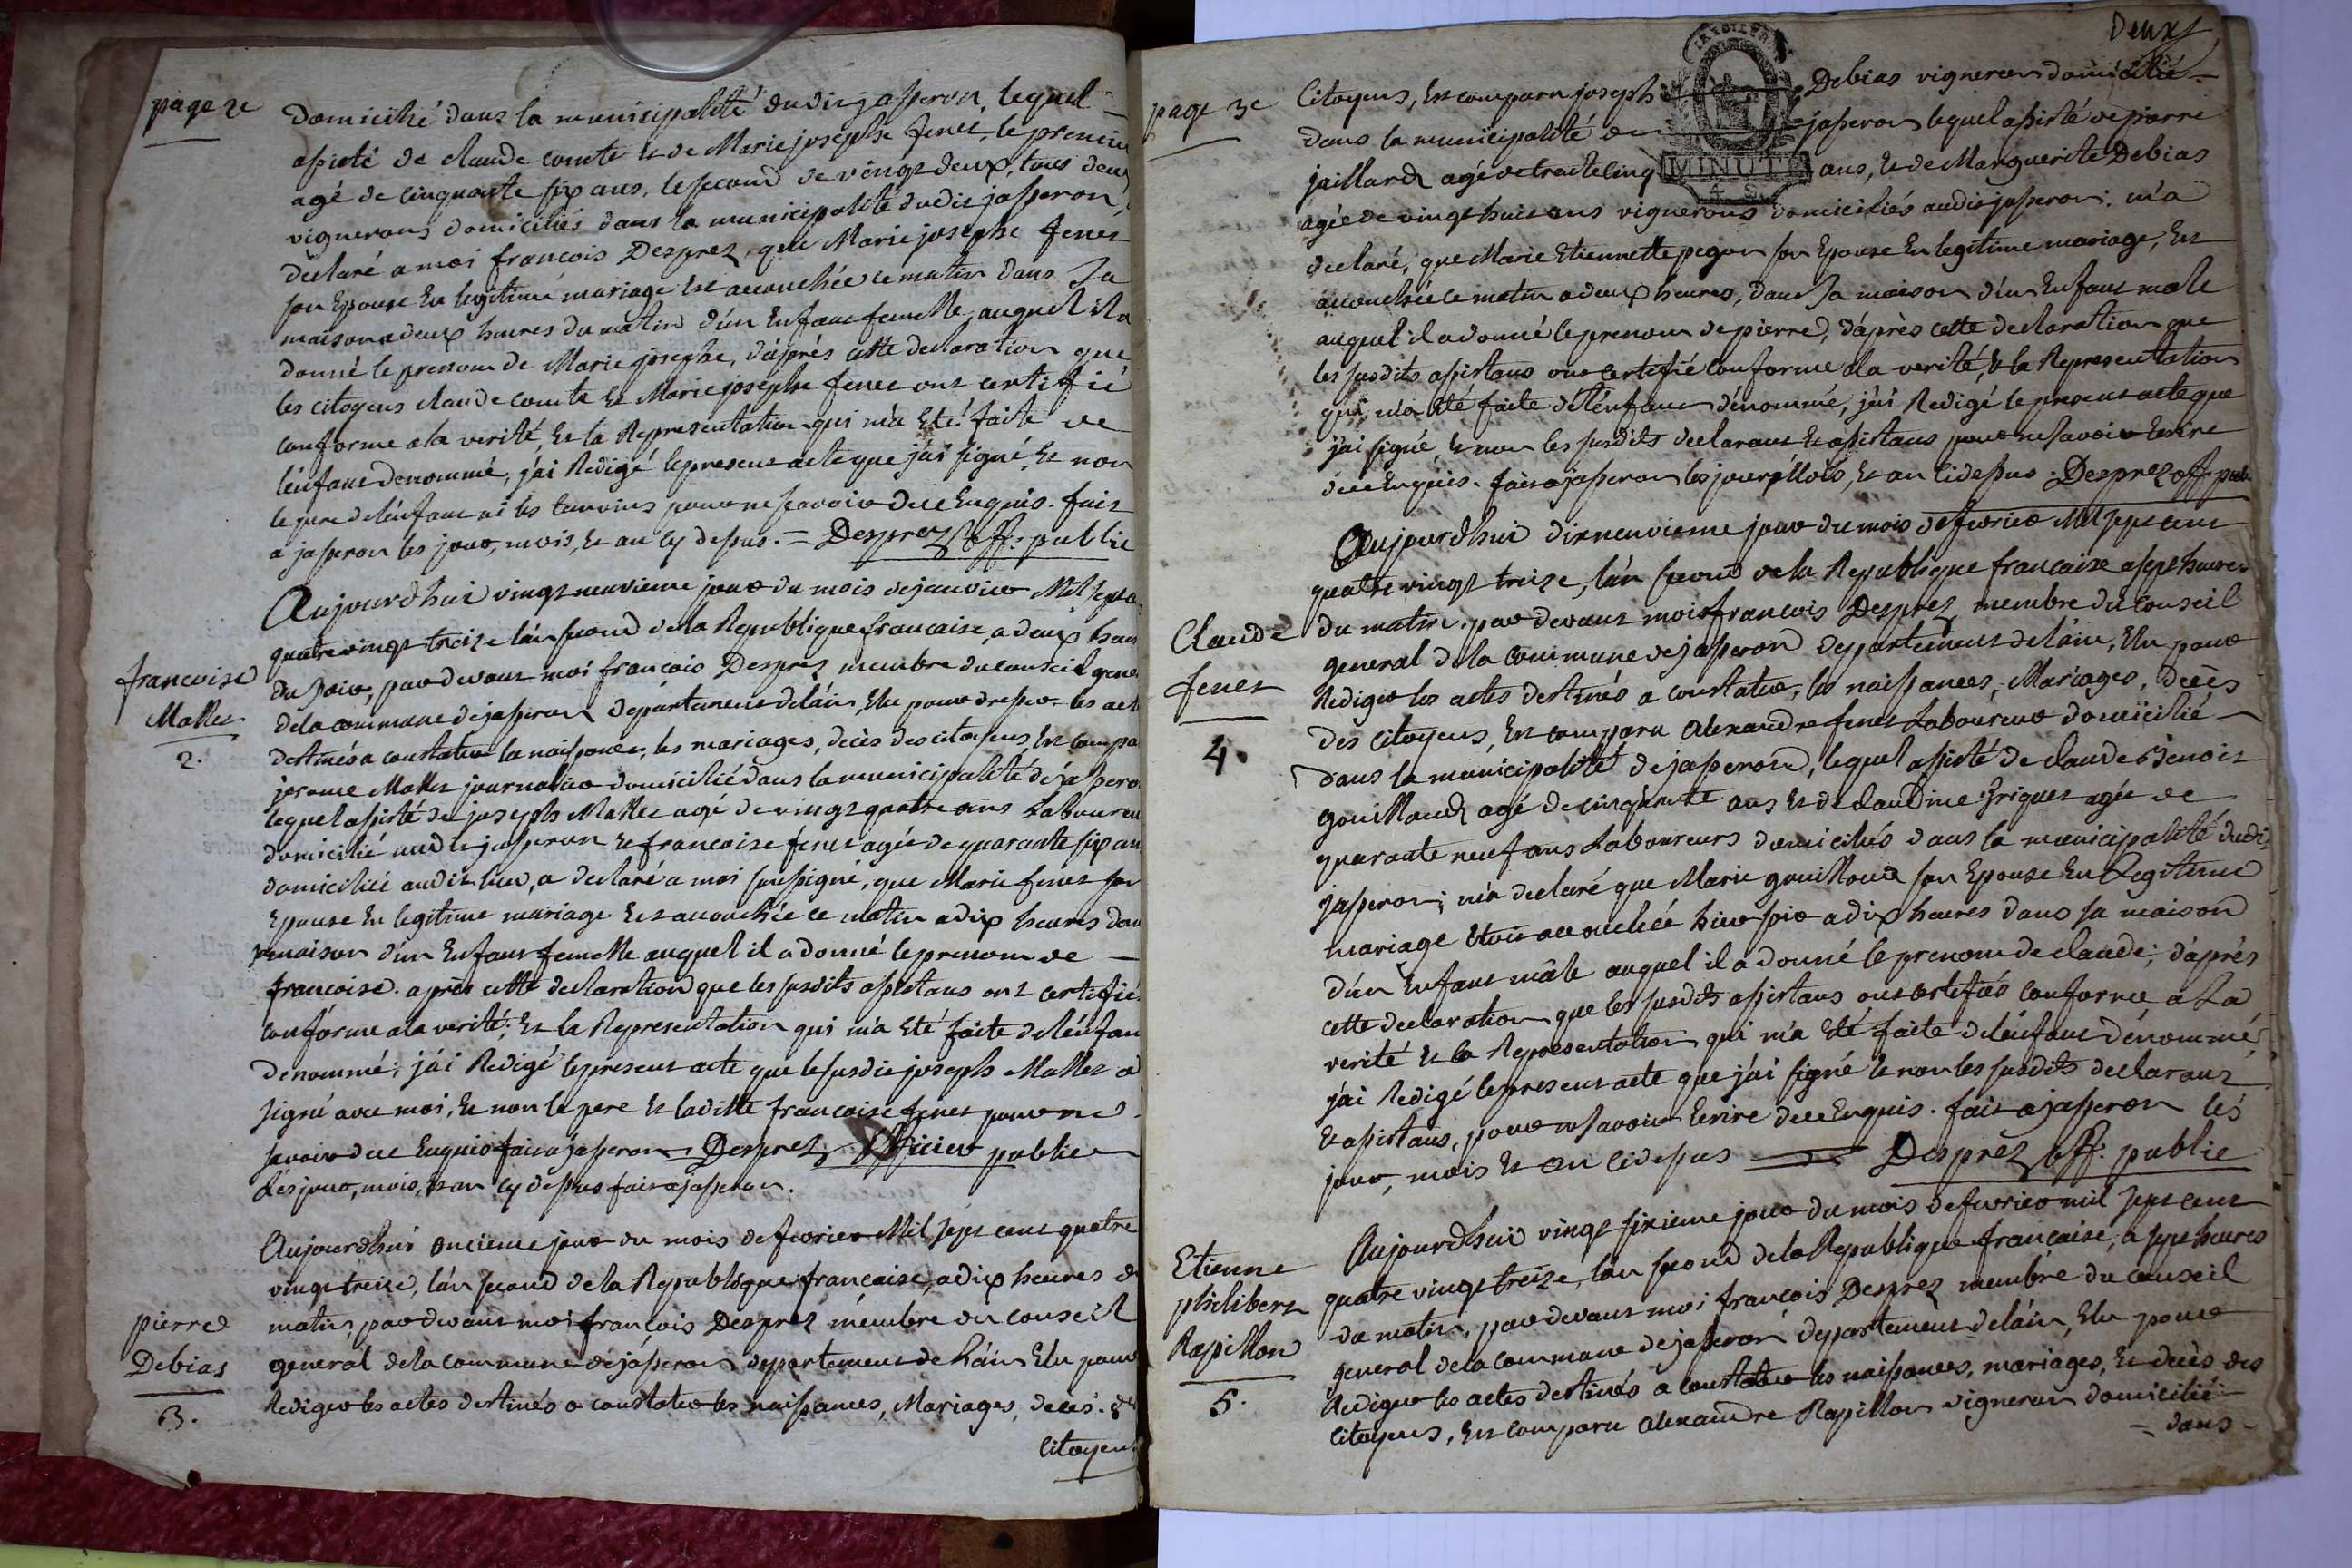 page 2e
domicilié dans la municipalité dudit jasseron, lequel
assisté de claude comte et de Marie josephe feret, le premier
agé de cinquante six ans, le second de vingt deux, tous deux
vignerons domiciliés dans la municipalité dudit jasseron,
declaré a moi francois Desprez, que Marie josephe feret
son Epouse En legitime mariage Est accouchée ce matin dans sa
maison a deux heures du matin d'un Enfant femelle, auquel il a
donné le prenom de Marie josephe, d'après cette declaration que
les citoyens claude comte Et Marie josephe feret ont certifié
conforme a la verité, Et la Representation qui m'a Eté faite de
l'enfant denommé, j'ai Redigé le present acte que j'ai signé, Et non
le pere de l'enfant ni les temoins pour ne scavoir de ce Enquis. fait
a jasseron les jour, mois, Et an cy dessus. = Desprez off. public
Aujourdhui vingt neuvieme jour du mois de janvier Mil sept
quatre vingt treize l'an second de la Republique francaise, a deux heur
du soir, par devant moi francois Desprez membre du conseil gene
de la commune de jasseron departement de l'ain, Elu pour dresser les act
destinés a constater la naissance, les mariages, decès des citoyens, Est compa
jerome Mallet journalier domicilié dans la municipalité de jassero
lequel assisté de joseph Mallet agé de vingt quatre ans Laboureu
domicilié audit jasseron Et francoise feret agée de quarante six an
domiciliée audit lieu, a declaré a moi soussigné, que Marie feret son
Epouse En legitime mariage Est accouchée ce matin a dix heures dans
maison d'un Enfant femelle auquel il a donné le prenom de
francoise. après cette declaration que les susdits assistans ont certifié
conforme a la verité; Et la Representation qui m'a Eté faite de l'enfan
denommé; j'ai Redigé le present acte que le susdit joseph Mallet a
signé avec moi, Et non le pere Et laditte francoise feret pour ne
savoir de ce Enquis fait a jasseron Desprez officier public
Les jour, mois, Et an cy dessus fait a jasseron.
Aujourdhui onzieme jour du mois de fevrier Mil sept cent quatre
vingt treize, l'an second de la Republique francaise, a dix heures d
matin, par devant moi françois Desprez membre du conseil
general de la commune de jasseron departement de L'ain Elu pour
Rediger les actes destinés a constater les naissances, Mariages, decès. des
citoyens
francoise
Mallet
2.
pierre
Debias
3.
Deux
page 3e
Citoyens, Est comparu joseph Debias vigneron domicilié
dans la municipalité de jasseron lequel assisté de pierre
jaillard agé de trente cinq ans, Et de Marguerite Debias
MINUTE
4. S.
agée de vingt huit ans vignerons domiciliés audit jasseron; m'a
declaré, que Marie Etiennette pegon son Epouse En legitime mariage, Est
accouchée ce matin a deux heures, dans sa maison d'un Enfant male
auquel il a donné le prenom de pierre, d'après cette declaration que
les susdits assistans ont certifié conforme a la verité, Et la Representation
qui m'a Eté faite de l'enfant dénommé, j'ai Redigé le present acte que
j'ai signé, Et non les susdits declarant Et assistans pour ne savoir Ecrire
de ce Enquis. fait a jasseron les jour, Mois, Et an ci dessus. Desprez off. public
Aujourdhui dixneuvieme jour du mois de fevrier Mil sept cent
quatre vingt treize, l'an second de la Republique francaise a sept heures
du matin, par devant moi francois Desprez membre du conseil
general de la commune de jasseron departement de l'ain, Elu pour
Rediger les actes destinés a constater, les naissances, Mariages, decès
des citoyens, Est comparu Alexandre feret Laboureur domicilié
dans la municipalité de jasseron, lequel assisté de claude Benoit
gouilloud agé de cinquante ans Et de claudine Griguet agée de
quarante neuf ans Laboureurs domiciliés dans la municipalité dudit
jasseron; m'a declaré que Marie gouilloud son Epouse En Legitime
mariage Etoit accouchée hier soir a dix heures dans sa maison
d'un Enfant mâle auquel il a donné le prenom de claude; d'après
cette declaration que les susdits assistans ont certifiés conforme a La
verité Et la Representation qui m'a Eté faite de l'enfant dénommé,
j'ai Redigé le present acte que j'ai signé Et non les susdits declarant
Et assistans, pour ne savoir Ecrire de ce Enquis. fait a jasseron les
jour, mois Et an ci dessus Desprez off. public
Aujourdhui vingt sixieme jour du mois de fevrier mil sept cent
quatre vingt treize, l'an second de la Republique francaise, a sept heures
du matin, par devant moi françois Desprez membre du conseil
general de la commune de jasseron departement de l'ain, Elu pour
Rediger les actes destinés a constater les naissances, mariages, Et decès des
citoyens, Est comparu Alexandre Rapillon vigneron domicilié
dans
Claude
feret
4.
Etienne
philibert
Rapillon
5.